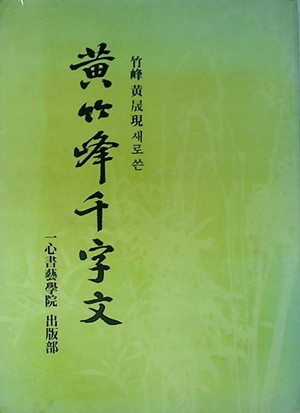 竹峰 黄晟現 새로 쓴
黄竹峰千字文
一心書藝學院 出版部